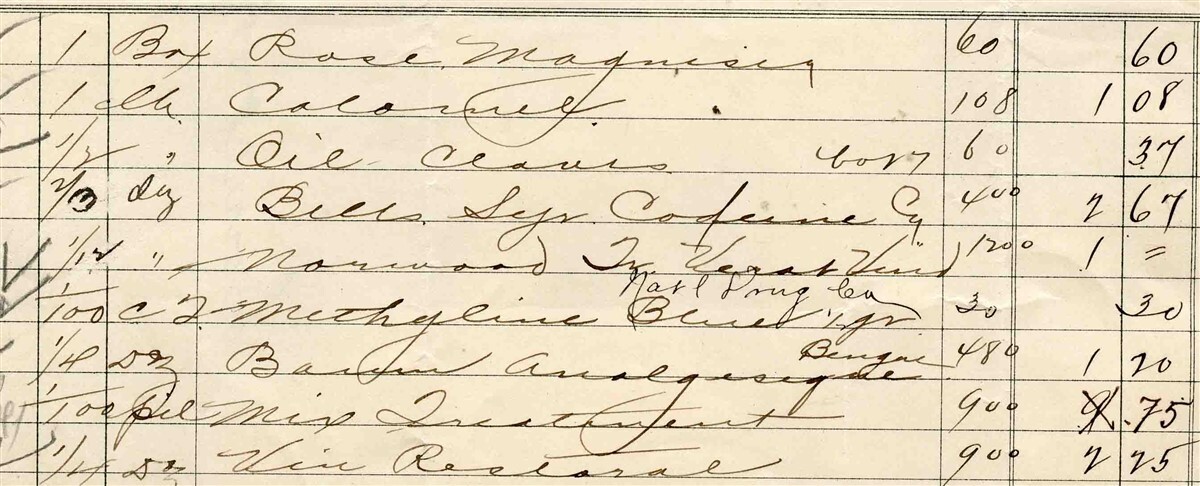 1 Box Rose Magnisia 60 60
1 lb. Calomel 108 1 08
1/2 " Oil Cloves 60 37
2/3 dz Bells Syr Codeine Cy 400 2 67
1/12 " Norwood Tr Verat Virid 1200 1 =
Nat'l Drug Co
1/100 C T Methyline Blue 1 gr 30 30
1/4 Dz Baum Analgesique Bengue 480 1 20
1/100 Pil Mix Treatment 900 .75
1/4 Dz Vin Restoral 900 2 25